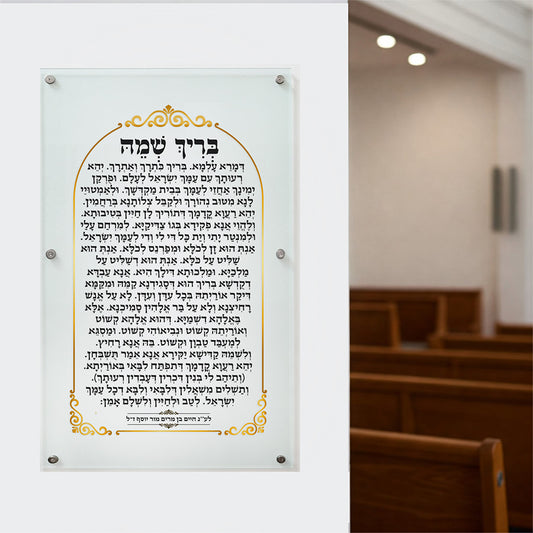 בְּרִיךְ שְׁמֵהּ
דְּמָרֵא עָלְמָא. בְּרִיךְ כִּתְרָךְ וְאַתְרָךְ. יְהֵא
רְעוּתָךְ עִם עַמָּךְ יִשְׂרָאֵל לְעָלַם. וּפֻרְקַן
יְמִינָךְ אַחֲזֵי לְעַמָּךְ בְּבֵית מַקְדְּשָׁךְ. וּלְאַמְטוּיֵי
לָנָא מִטּוּב נְהוֹרָךְ וּלְקַבֵּל צְלוֹתָנָא בְּרַחֲמִין.
יְהֵא רַעֲוָא קֳדָמָךְ דְּתוֹרִיךְ לָן חַיִּין בְּטִיבוּתָא.
וְלֶהֱוֵי אֲנָא פְקִידָא בְּגוֹ צַדִּיקַיָּא. לְמִרְחַם עָלַי
וּלְמִנְטַר יָתִי וְיָת כָּל דִּי לִי וְדִי לְעַמָּךְ יִשְׂרָאֵל.
אַנְתְּ הוּא זָן לְכֹלָּא וּמְפַרְנֵס לְכֹלָּא. אַנְתְּ הוּא
שַׁלִּיט עַל כֹּלָּא. אַנְתְּ הוּא דְּשַׁלִּיט עַל
מַלְכַיָּא. וּמַלְכוּתָא דִּילָךְ הִיא. אֲנָא עַבְדָּא
דְקֻדְשָׁא בְּרִיךְ הוּא דְּסָגִידְנָא קַמֵּהּ וּמִקַּמָּא
דִּיקַר אוֹרַיְתֵהּ בְּכָל עִדָּן וְעִדָּן. לָא עַל אֱנָשׁ
רָחִיצְנָא וְלָא עַל בַּר אֱלָהִין סָמִיכְנָא. אֶלָּא
בֶּאֱלָהָא דִשְׁמַיָּא. דְּהוּא אֱלָהָא קְשׁוֹט
וְאוֹרַיְתֵהּ קְשׁוֹט וּנְבִיאוֹהִי קְשׁוֹט. וּמַסְגֵּא
לְמֶעְבַּד טַבְוָן וּקְשׁוֹט. בֵּהּ אֲנָא רָחִיץ.
וְלִשְׁמֵהּ קַדִּישָׁא יַקִּירָא אֲנָא אֵמַר תֻּשְׁבְּחָן.
יְהֵא רַעֲוָא קֳדָמָךְ דְּתִפְתַּח לִבָּאִי בְּאוֹרַיְתָא.
(וְתֵיהַב לִי בְּנִין דִּכְרִין דְּעָבְדִין רְעוּתָךְ).
וְתַשְׁלִים מִשְׁאֲלִין דְּלִבָּאִי וְלִבָּא דְכָל עַמָּךְ
יִשְׂרָאֵל. לְטַב וּלְחַיִּין וְלִשְׁלָם אָמֵן:
לע״נ חיים בן מרים מור יוסף ז״ל